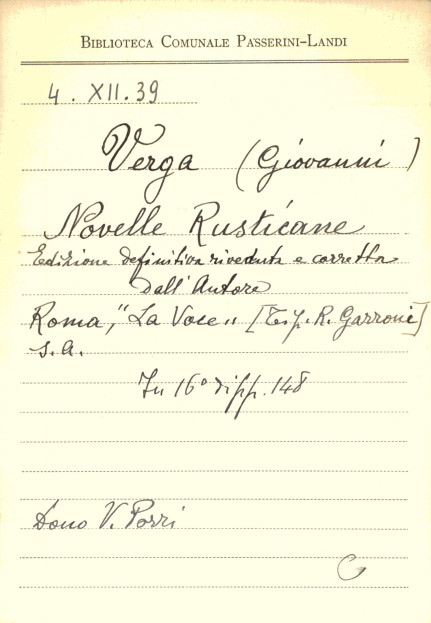 BIBLIOTECA COMUNALE PASSERINI-LANDI
4. XII. 39
Verga (Giovanni)
Novelle Rusticane
Edizione definitiva riveduta e corretta
dall'Autore
Roma, "La Voce" [Tip. R. Garroni]
s.a.
In 16° di pp. 148
Dono V. Porri